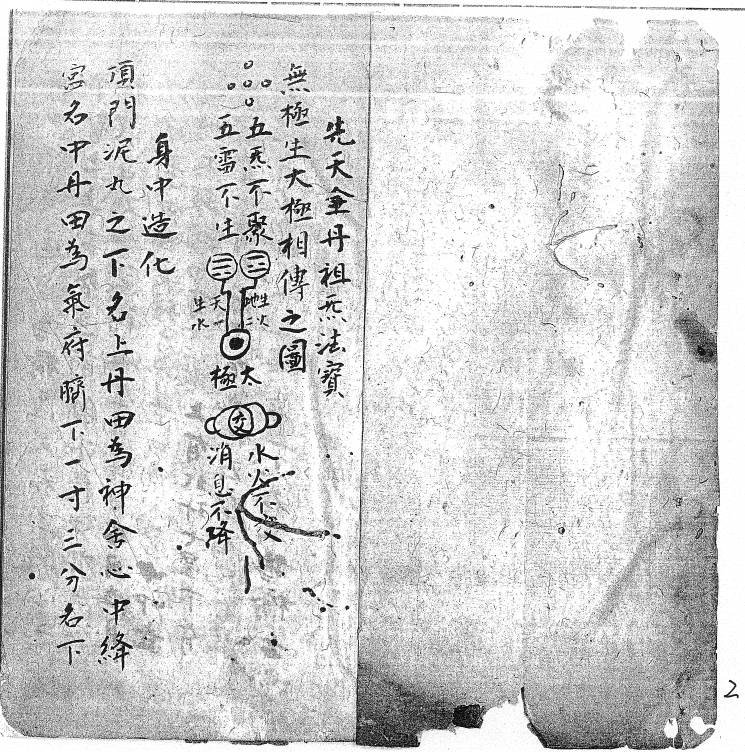 先天金丹祖炁法寶
無極生大極相傳之圖
五炁不聚
五雷不生
地二生火
天一生水
太極
交
水火不交
消息不降
身中造化
頂門泥丸之下名上丹田為神舍心中絳
宮名中丹田為氣府臍下一寸三分名下
2